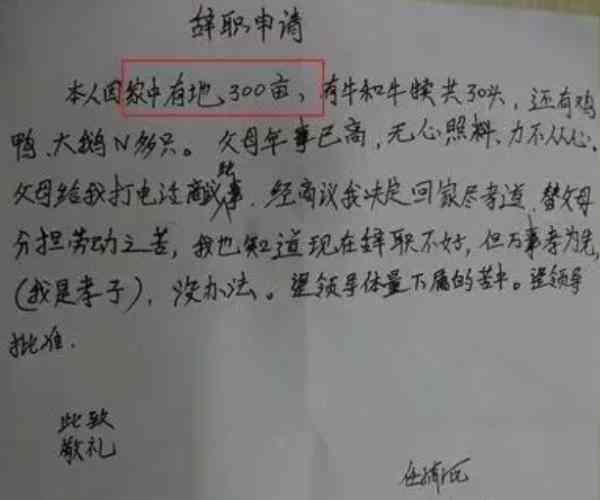 辞职申请
本人因家中有地300亩，有牛和牛犊共30头，还有鸡
鸭、大鹅N多只。父母年事已高，无心照料、力不从心。
父母给我打电话商议此事，经商议我决定回家尽孝道，替父母
分担劳动之苦，我也知道现在辞职不好，但万事孝为先，
(我是孝子)，没办法。望领导体量下属的苦半。望领导
批准.
此致
敬礼